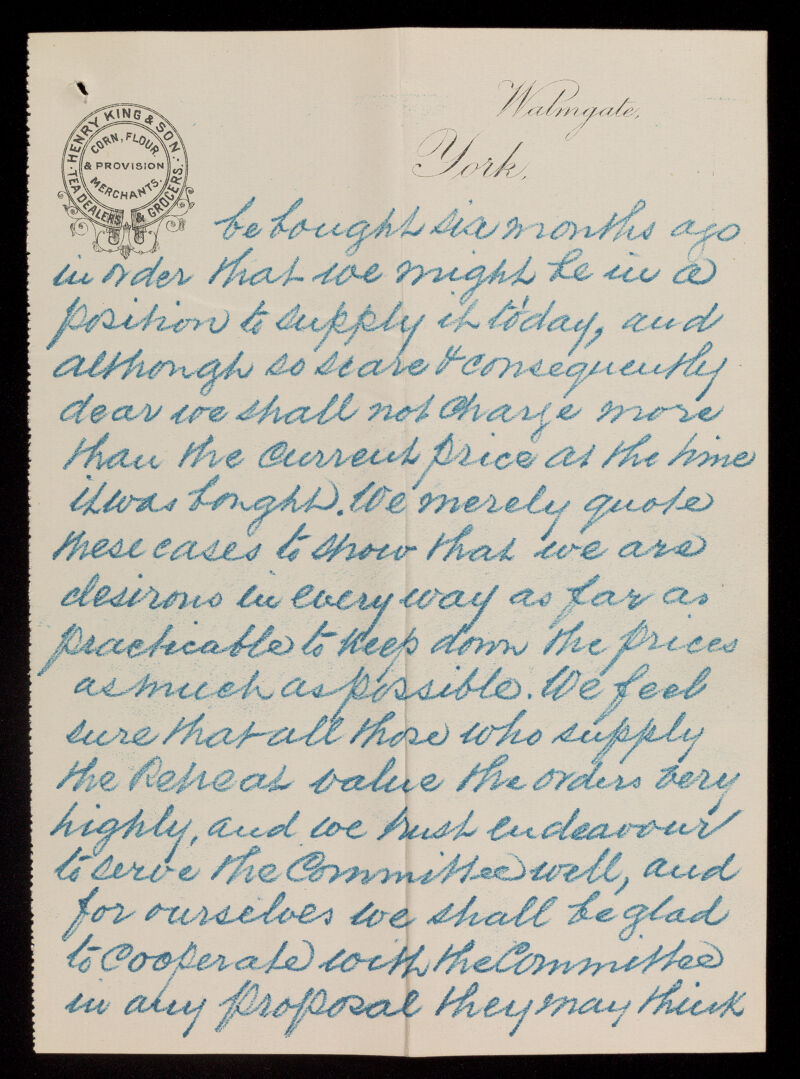 HENRY KING & SON.
CORN, FLOUR,
& PROVISION
MERCHANTS.
TEA DEALERS & GROCERS.
Walmgate,
York.
be bought six months ago
in order that we might be in a
position to supply it to'day, and
although so scare & consequently
dear we shall not charge more
than the current price at the time
it was bought. We merely quote
these cases to show that we are
desirous in every way as far as
practicable to keep down the prices
as much as possible. We feel
sure that all those who supply
the Retreat value the orders very
highly, and we trust endeavour
to serve the Committee well, and
for ourselves we shall be glad
to cooperate with the Committee
in any proposal they may think